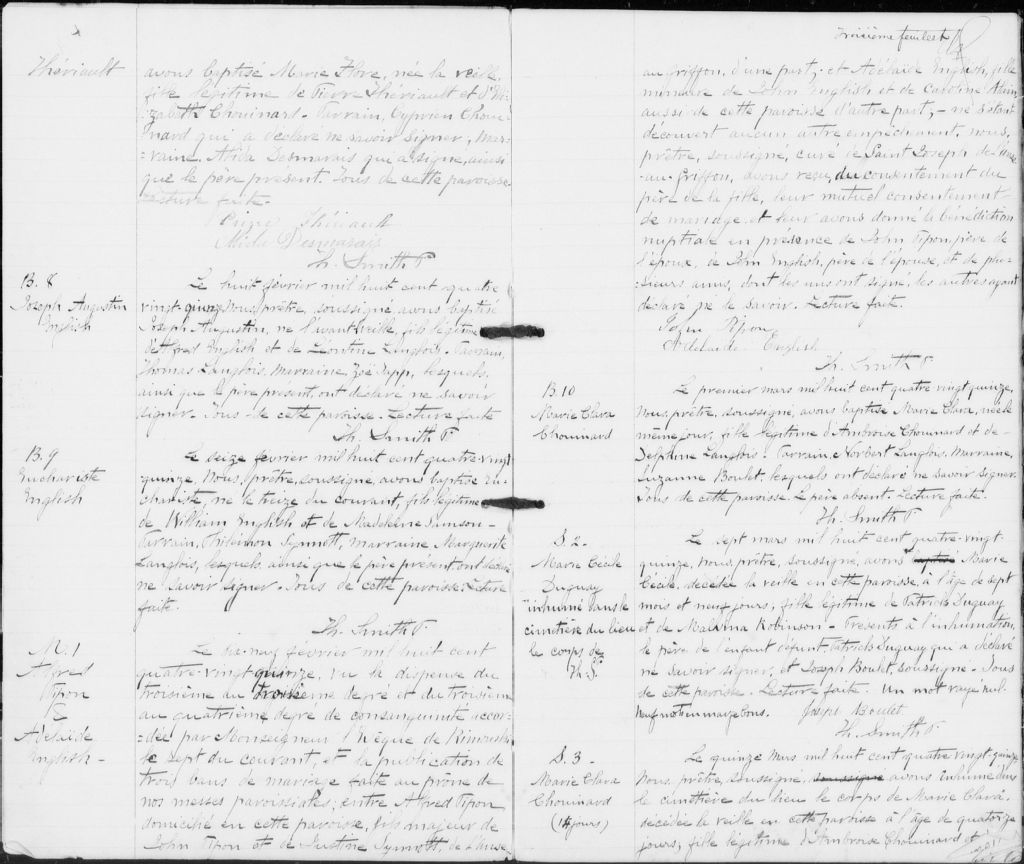 Thériault
avons baptisé Marie Flore, née la veille,
fille légitime de Pierre Thériault et d'Eli-
=zabeth Chouinard. Parrain, Cyprien Choui-
nard qui a déclaré ne savoir signer; mar-
raine, Alida Desmarais qui a signé, ainsi
que le père présent. Tous de cette paroisse
Lecture faite.
Pierre Thériault
Alida Desmarais
Th. Smith P
B. 8
Joseph Augustin
English
Le huit février mil huit cent quatre
vingt quinze, Nous, prêtre, soussigné, avons baptisé
Joseph Augustin, né l'avant veille, fils légitime
d'Alfred English et de Léontine Langlois. Parrain,
Thomas Langlois, Marraine, Zoé Tapp, lesquels,
ainsi que le père présent, ont déclaré ne savoir
signer. Tous de cette paroisse. Lecture faite
Th. Smith P.
B. 9
Euchariste
English
Le seize février mil huit cent quatre-vingt
quinze, Nous, prêtre, soussigné, avons baptisé Eu-
chariste, né le treize du courant, fils légitime
de William English et de Madeleine Samson-
Parrain, Philémon Synnott, marraine, Marguerite
Langlois, lesquels, ainsi que le père présent ont déclaré
ne savoir signer. Tous de cette paroisse. Lecture
faite.
Th. Smith P.
M. 1
Alfred
Pipon
&
Adélaïde
English -
Le dix-neuf février mil huit cent
quatre-vingt quinze, vu la dispense du
troisième au troisième degré et du troisième
au quatrième degré de consanguinité accor-
=dée par Monseigneur l'Evêque de Rimouski
le sept du courant, et la publication de
trois bans de mariage faite au prône de
nos messes paroissiales, entre Alfred Pipon
domicilié en cette paroisse, fils majeur de
John Pipon et de Justine Synnott, de l'Anse
Troisième feuillet
au Griffon, d'une part; et Adélaïde English, fille
mineure de John English et de Caroline Alain
aussi de cette paroisse d'autre part; - ne s'étant
découvert aucun autre empêchement, nous,
prêtre, soussigné, curé de Saint Joseph de l'Anse
-au-Griffon, avons reçu, du consentement du
père de la fille, leur mutuel consentement
de mariage et leur avons donné la bénédiction
nuptiale en présence de John Pipon, père de
l'époux, de John English, père de l'épouse, et de plu-
sieurs amis, dont les uns ont signé, les autres ayant
déclaré ne le savoir. Lecture faite
John Pipon
Adelaide English
Th. Smith P
B. 10
Marie Clara
Chouinard
Le premier mars mil huit cent quatre vingt quinze,
Nous, prêtre, soussigné, avons baptisé Marie Clara, née le
même jour, fille légitime d'Ambroise Chouinard et de-
Delphine Langlois. Parrain, Norbert Langlois, Marraine,
Suzanne Boulet, lesquels ont déclaré ne savoir signer.
Tous de cette paroisse. Le père absent. Lecture faite.
Th. Smith P
S. 2 -
Marie Cécile
Duguay
inhumé dans le
cimetière du lieu
le corps de
Th. S.
Le sept mars mil huit cent quatre-vingt
quinze, nous, prêtre, soussigné, avons baptisé Marie
Cécile, décédée la veille en cette paroisse, à l'âge de sept
mois et neuf jours, fille légitime de Patrick Duguay
et de Malvina Robinson. - Présents à l'inhumation,
le père de l'enfant défunt, Patrick Duguay qui a déclaré
ne savoir signer, et Joseph Boulet, soussigné. Tous
de cette paroisse. Lecture faite. Un mot rayé nul.
Neuf mots en marge bons. Joseph Boulet
Th. Smith P
S. 3 -
Marie Clara
Chouinard
(14 jours)
Le quinze Mars mil huit cent quatre vingt quinze,
Nous, prêtre, soussigné, soussigné avons inhumé dans
le cimetière du lieu le corps de Marie Clara,
décédée la veille en cette paroisse à l'âge de quatorze
jours, fille légitime d'Ambroise Chouinard et